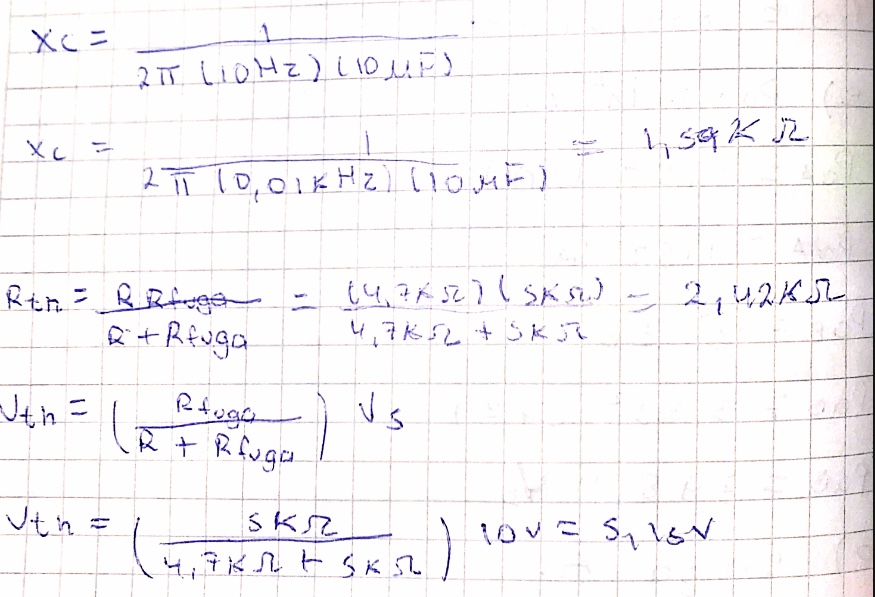 Xc = 1 / 2π (10Hz) (10 μF)
Xc = 1 / 2π (0,01KHz) (10 μF) = 1,59K Ω
Rth = R Rfuga / R + Rfuga = (4,7KΩ) (5KΩ) / 4,7KΩ + 5KΩ = 2,42KΩ
Vth = (Rfuga / R + Rfuga) Vs
Vth = (5KΩ / 4,7KΩ + 5KΩ) 10V = 5,15V